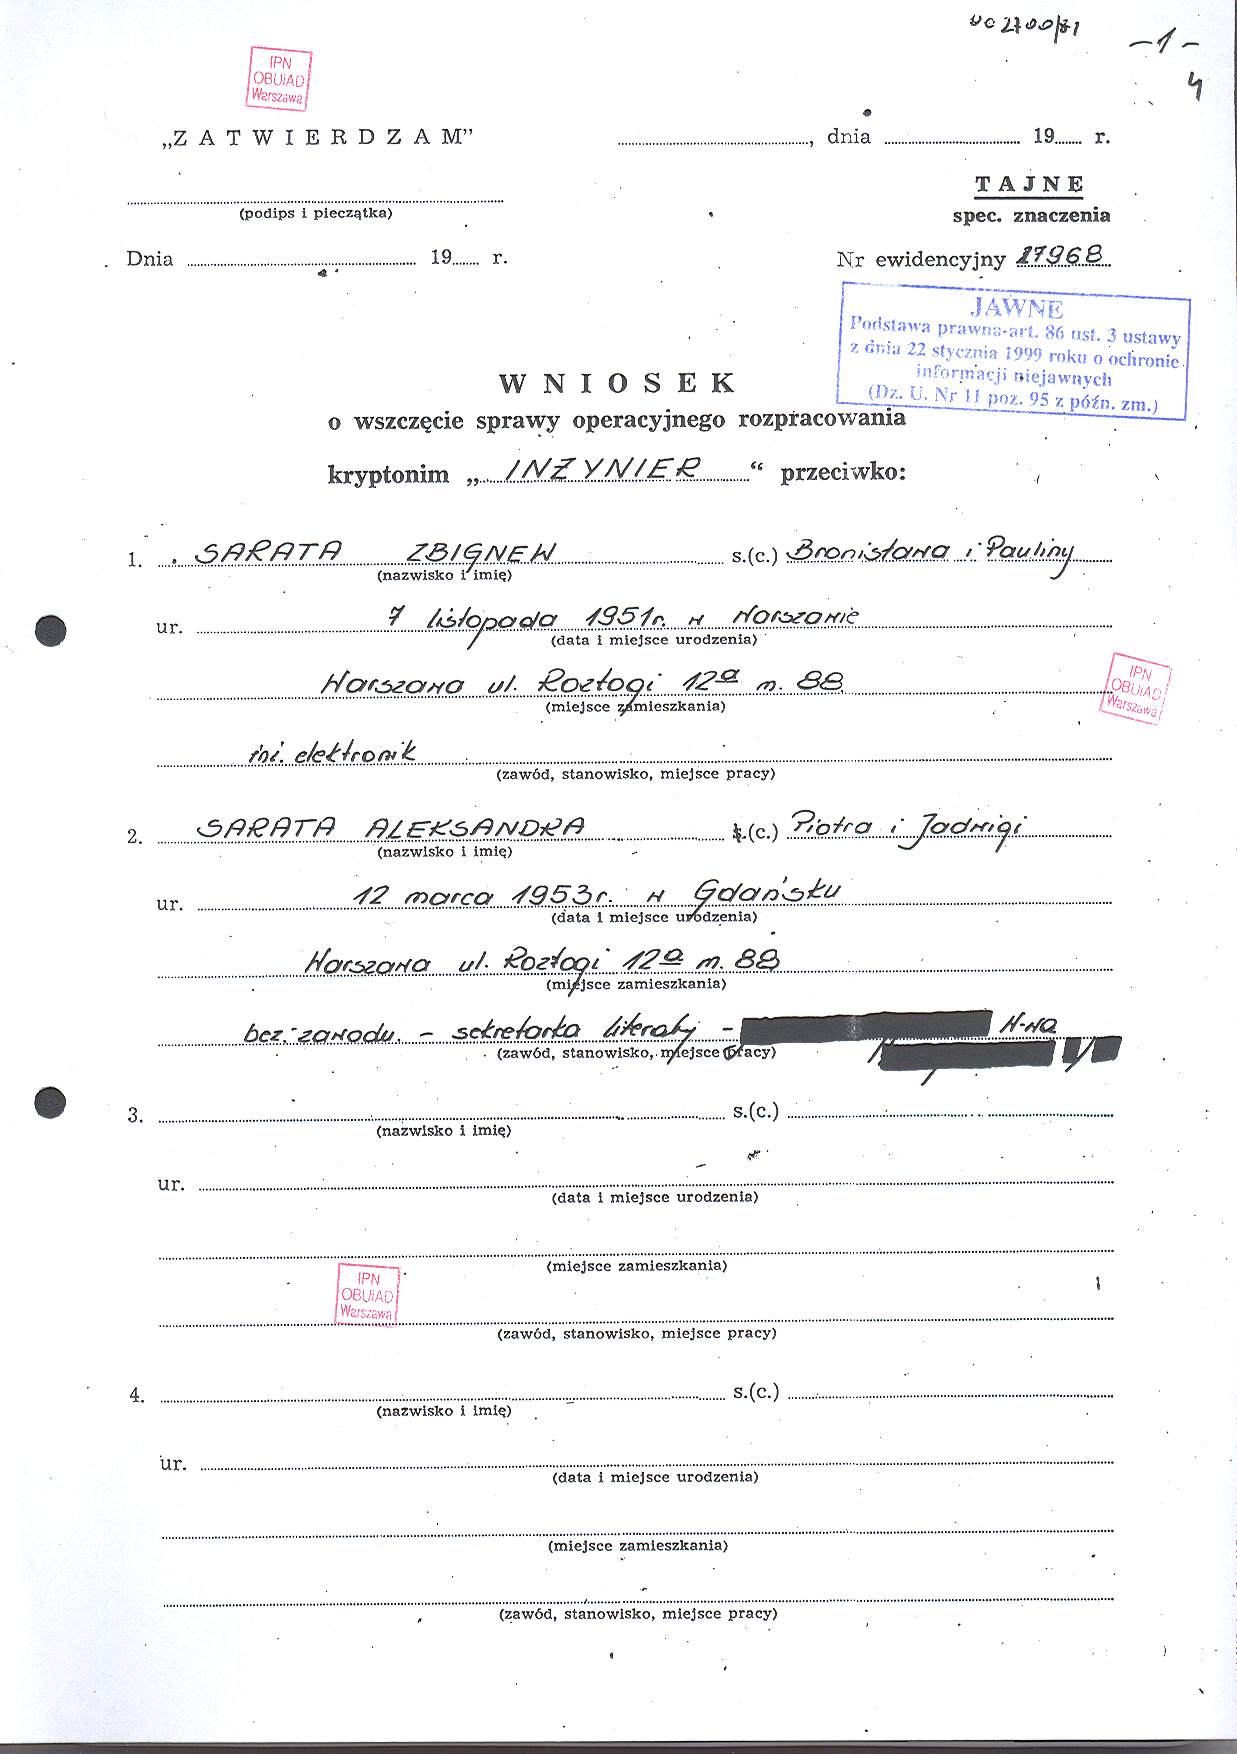 UC 2700/81
-1-
4
IPN
OBUiAD
Warszawa
„ZATWIERDZAM”
, dnia 19 r.
(podips i pieczątka)
TAJNE
spec. znaczenia
Dnia 19 r.
Nr ewidencyjny 27968
JAWNE
Podstawa prawna-art. 86 ust. 3 ustawy
z dnia 22 stycznia 1999 roku o ochronie
informacji niejawnych
(Dz. U. Nr 11 poz. 95 z późn. zm.)
WNIOSEK
o wszczęcie sprawy operacyjnego rozpracowania
kryptonim „INŻYNIER“ przeciwko:
1. SARATA ZBIGNEW s.(c.) Bronisława i Pauliny
(nazwisko i imię)
ur. 7 listopada 1951r. w Warszawie
(data i miejsce urodzenia)
Warszawa ul. Rozłogi 12a m. 88
(miejsce zamieszkania)
IPN
OBUiAD
Warszawa
inż. elektronik
(zawód, stanowisko, miejsce pracy)
2. SARATA ALEKSANDRA s.(c.) Piotra i Jadwigi
(nazwisko i imię)
ur. 12 marca 1953r. w Gdańsku
(data i miejsce urodzenia)
Warszawa ul. Rozłogi 12a m. 88
(miejsce zamieszkania)
bez zawodu. - sekretarka literaty - W-wa
(zawód, stanowisko, miejsce pracy)
3. s.(c.)
(nazwisko i imię)
ur.
(data i miejsce urodzenia)
(miejsce zamieszkania)
IPN
OBUiAD
Warszawa
(zawód, stanowisko, miejsce pracy)
4. s.(c.)
(nazwisko i imię)
ur.
(data i miejsce urodzenia)
(miejsce zamieszkania)
(zawód, stanowisko, miejsce pracy)